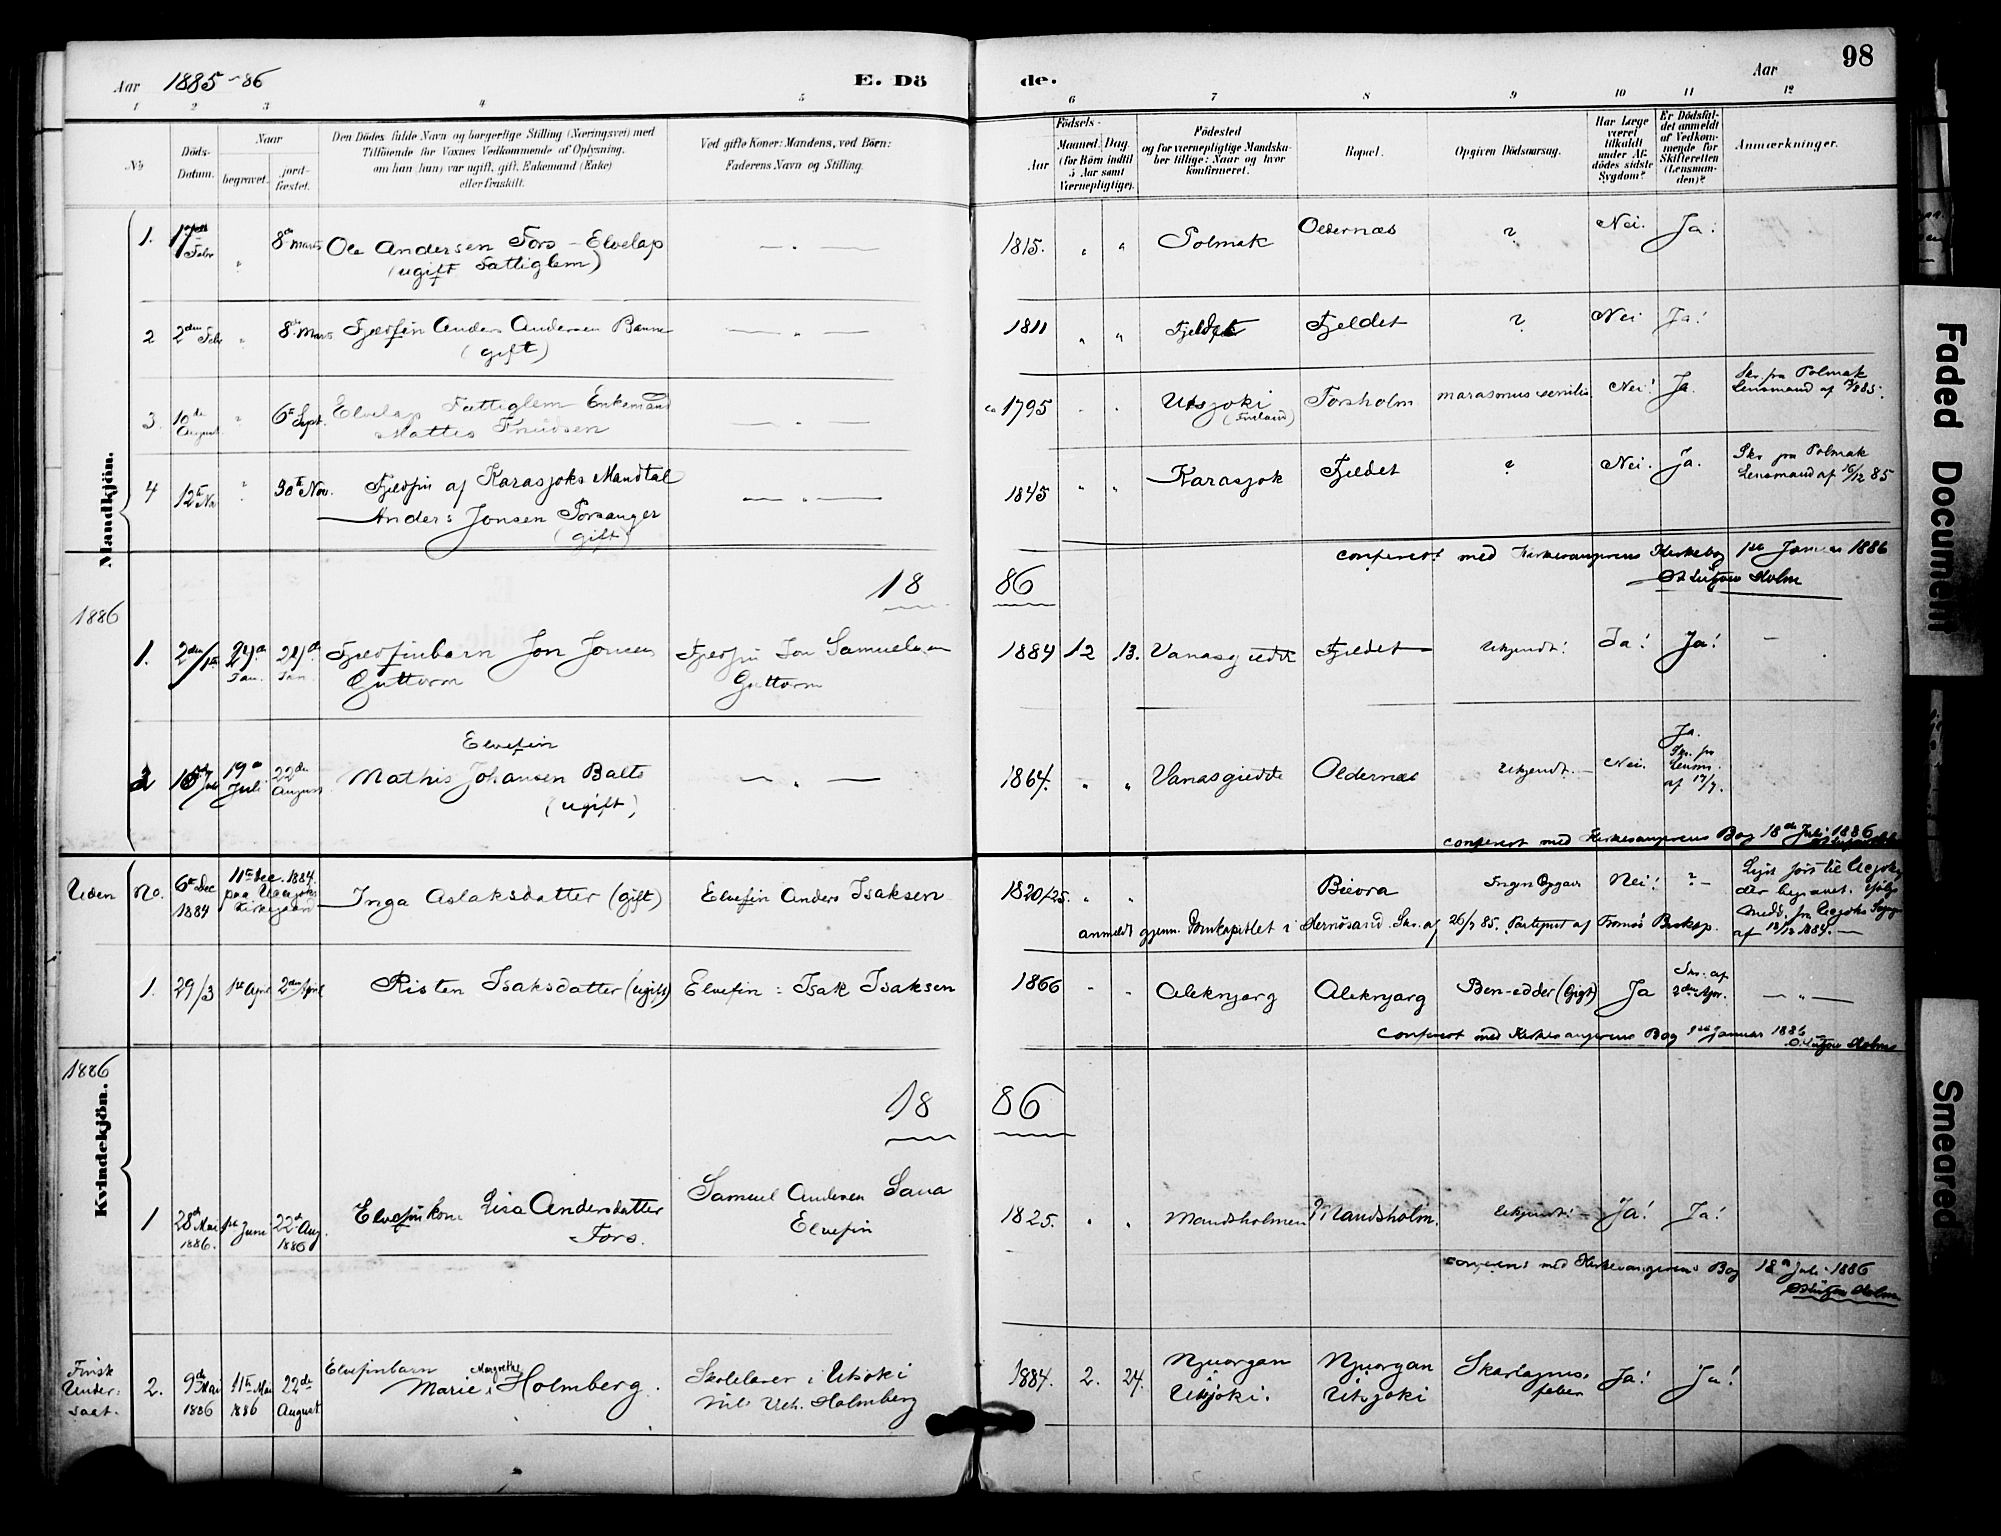 Aar 1885-86
E. Dö
de.
Aar
98
1 2 3 4 5 6 7 8 9 10 11 12
No
Döds-Datum.
Naar
begravet.
jord-fæstet.
Den Dödes fulde Navn og borgerlige Stilling (Næringsvei) med
Tilföiende for Voxnes Vedkommende af Oplysning,
om han (hun) var ugift, gift, Enkemand (Enke)
eller fraskilt.
Ved gifte Koner: Mandens, ved Börn:
Faderens Navn og Stilling.
Födsels-
Aar
Maaned. Dag.
(for Börn indtil
5 Aar samt
Værnepligtige).
Födested
og for værnepligtige Mandska-
ber tillige: Naar og hvor
konfirmeret.
Bopæl.
Opgiven Dödsaarsag.
Har Læge
været
tilkaldt
under Af-
dödes sidste
Sygdom?
Er Dödsfal-
det anmeldt
af Vedkom-
mende for
Skifteretten
(Lensman-
den)?
Anmærkninger.
Mandkjön.
1. Febr 8de Marts Ole Andersen Fors - Elvelap
(ugift Fattiglem)
1815. Polmak Oldernæs ? Nei. Ja!
2 2den Febr 8de Marts Fjeldfin Anders Andersen Banne
(gift)
1811 Fjeldet Fjeldet ? Nei Ja!
3. 10de August 6te Sept. Elvelap Fattiglem Enkemand
Mattis Knudsen
ca 1795 Utsjoki (Finland) Forsholm marasmus senilis Nei! Ja. Skr. fra Polmak
Lensmand af
4 12te Nov 30te Nov. Fjeldfin af Karasjoks Mandtal
Anders Jonsen Porsanger
(gift)
1845 Karasjok Fjeldet ? Nei. Ja. Skr. fra Polmak
Lensmand af 16/12 85
conferert med Kirkesangerens Kirkebog 1ste Januar 1886
O. Lützow Holm
1886
18 86
1. 2den/1ste Jan. Jan Fjeldfinbarn Jon Jonsen
Guttorm
Fjeldfin Jon Samuelsen
Guttorm
1884 12 13. Vanasgiedde Fjeldet Ukjendt! Ja! Ja! -
2 Juli 19de Juli 22de August Elvefin
Mathis Johansen Balto
(ugift)
1864. Vanasgiedde Oldernæs Ukjendt. Nei. Ja.
Skr. fra
Lensm.
af 17/7.
conferert med Kirkesangerens Bog 18de Juli 1886
Uden No. 6te Dec 1884 11te Dec. 1884.
paa Utsjoki
Kirkegaard
Inga Aslaksdatter (gift) Elvefin Anders Isaksen
1820/25. Bievra Ingen Opgave Nei! ? -
Liget fört til Utsjoki,
der begravet. ifölge
Medd. fra Utsjoki Sogn
af 12/12 1884.
anmeldt gjenn. Domkapitlet i Hernösand. Skr. af 26/7 85. Paategnet af Tromsö Biskop.
1. 29/3 1ste April 2den April Risten Isaksdatter (ugift) Elvefin: Isak Isaksen
1866 Aleknjarg Aleknjarg Ben-edder (Gigt) Ja Skr. af
2den Apr.
conferert med Kirkesangerens Bog 1ste Januar 1886
O. Lützow Holm
1886
Kvindekjön.
18 86
1 28de Mai
1886. 1ste Juni 22de Aug
1886 Elvefinkone Lisa Andersdatter
Fors.
Samuel Andersen Sana
Elvefin
1825. Mandsholmen Mandsholm. Ukjendt! Ja! Ja!
conferert med Kirkesangerens Bog 18de Juli 1886
O. Lützow Holm
Finsk
Under-
saat.
2. 9de Mai
1886 11te Mai
1886 22de
August Elvefinbarn
Marie Margrethe Holmberg.
Skolelærer i Utsjoki
Nils Holmberg
1884. 2. 24. Njuorgan
i
Utsjoki.
Njuorgan
Utsjoki
Skarlagens-
feber
Ja! Ja!
Faded Document
Smeared